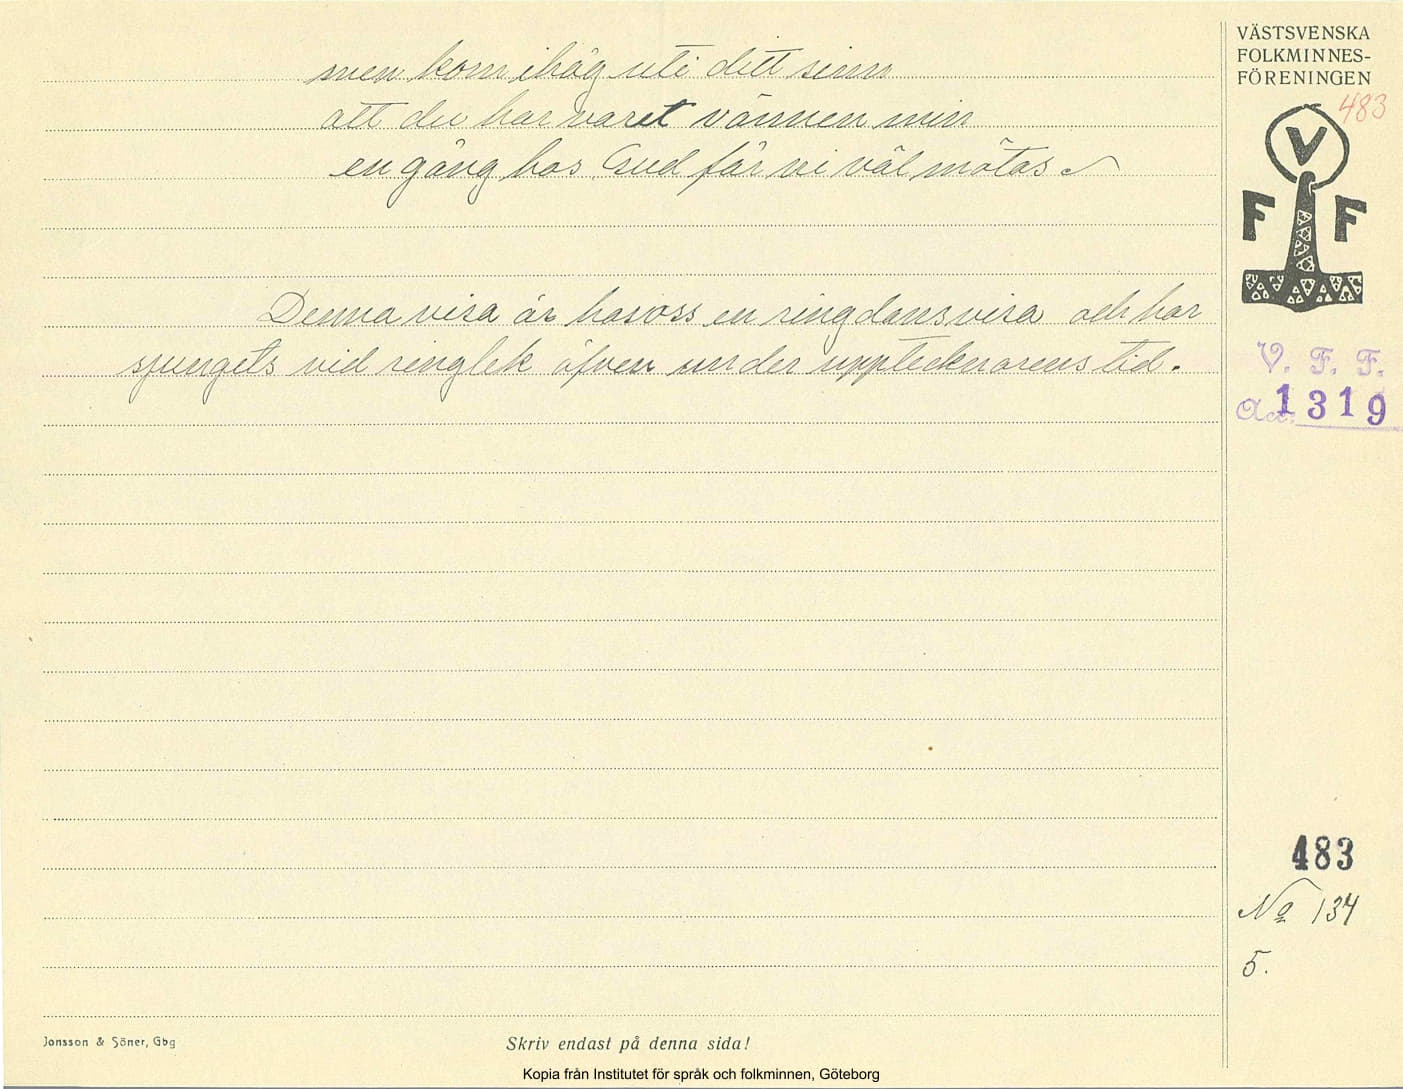 men kom ihåg uti ditt sinn
att du har varet vännen min
en gång hos Gud får vi väl mötas.
Denna visa är hos oss en ringdansvisa och har
sjungets vid ringlek äfven under upptecknarens tid.
VÄSTSVENSKA
FOLKMINNES-
FÖRENINGEN
483
V
F F
V. F. F.
Acc. 1319
483
No 134
5.
Jonsson & Söner, Gbg
Skriv endast på denna sida!
Kopia från Institutet för språk och folkminnen, Göteborg